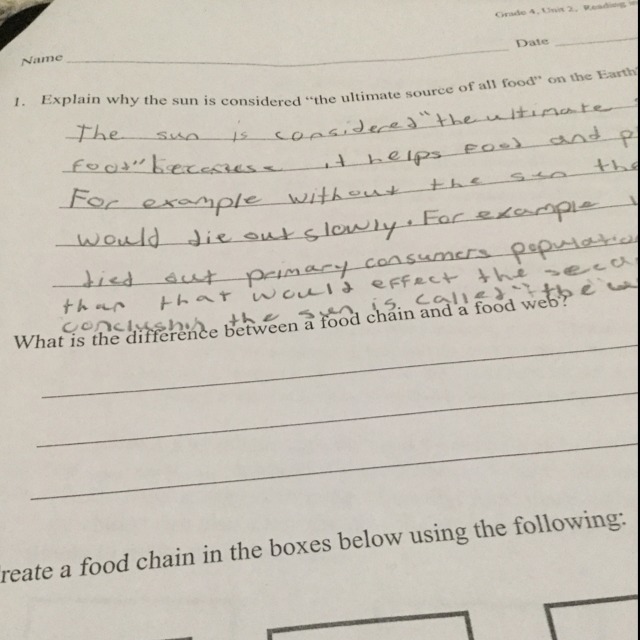 Grade 4, Unit 2, Reading
Date
Name
1. Explain why the sun is considered "the ultimate source of all food" on the Earth
The sun is considered "the ultimate
food" because it helps food and p
For example without the sun the
would die out slowly. For example
died out primary consumers populatio
than that would effect the seco
conclushin the sun is called "the u
What is the difference between a food chain and a food web?
reate a food chain in the boxes below using the following: